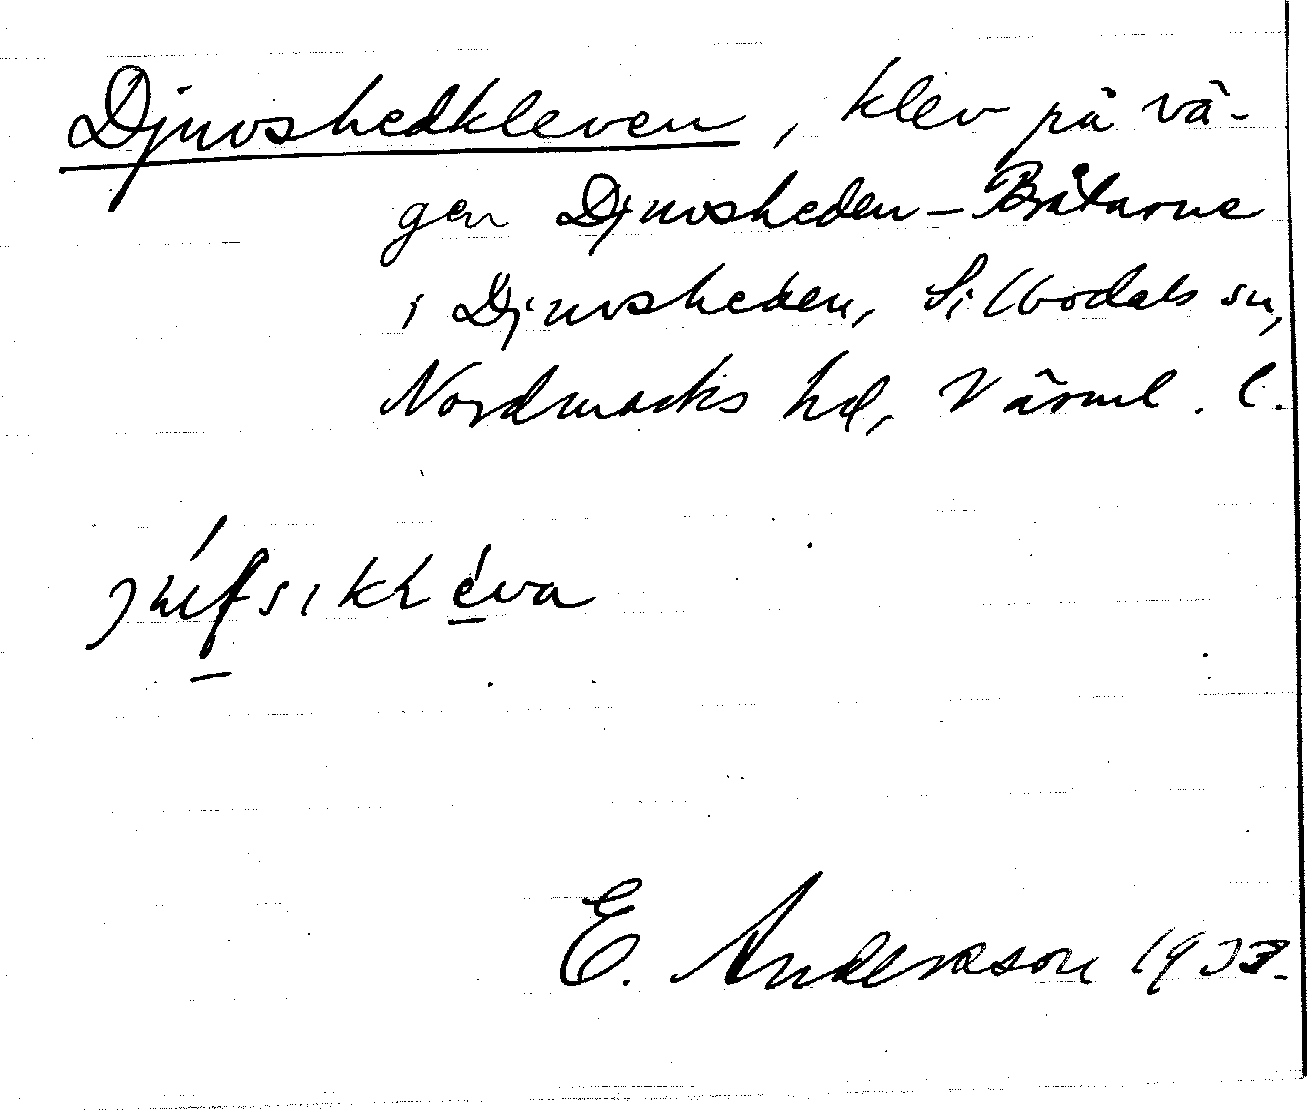 Djuvshedkleven, klev på vä-
gen Djuvsheden - Bråtarne
i Djuvsheden, Silbodals sn,
Nordmarks hd, Värml. l.
E. Andersson 1933.